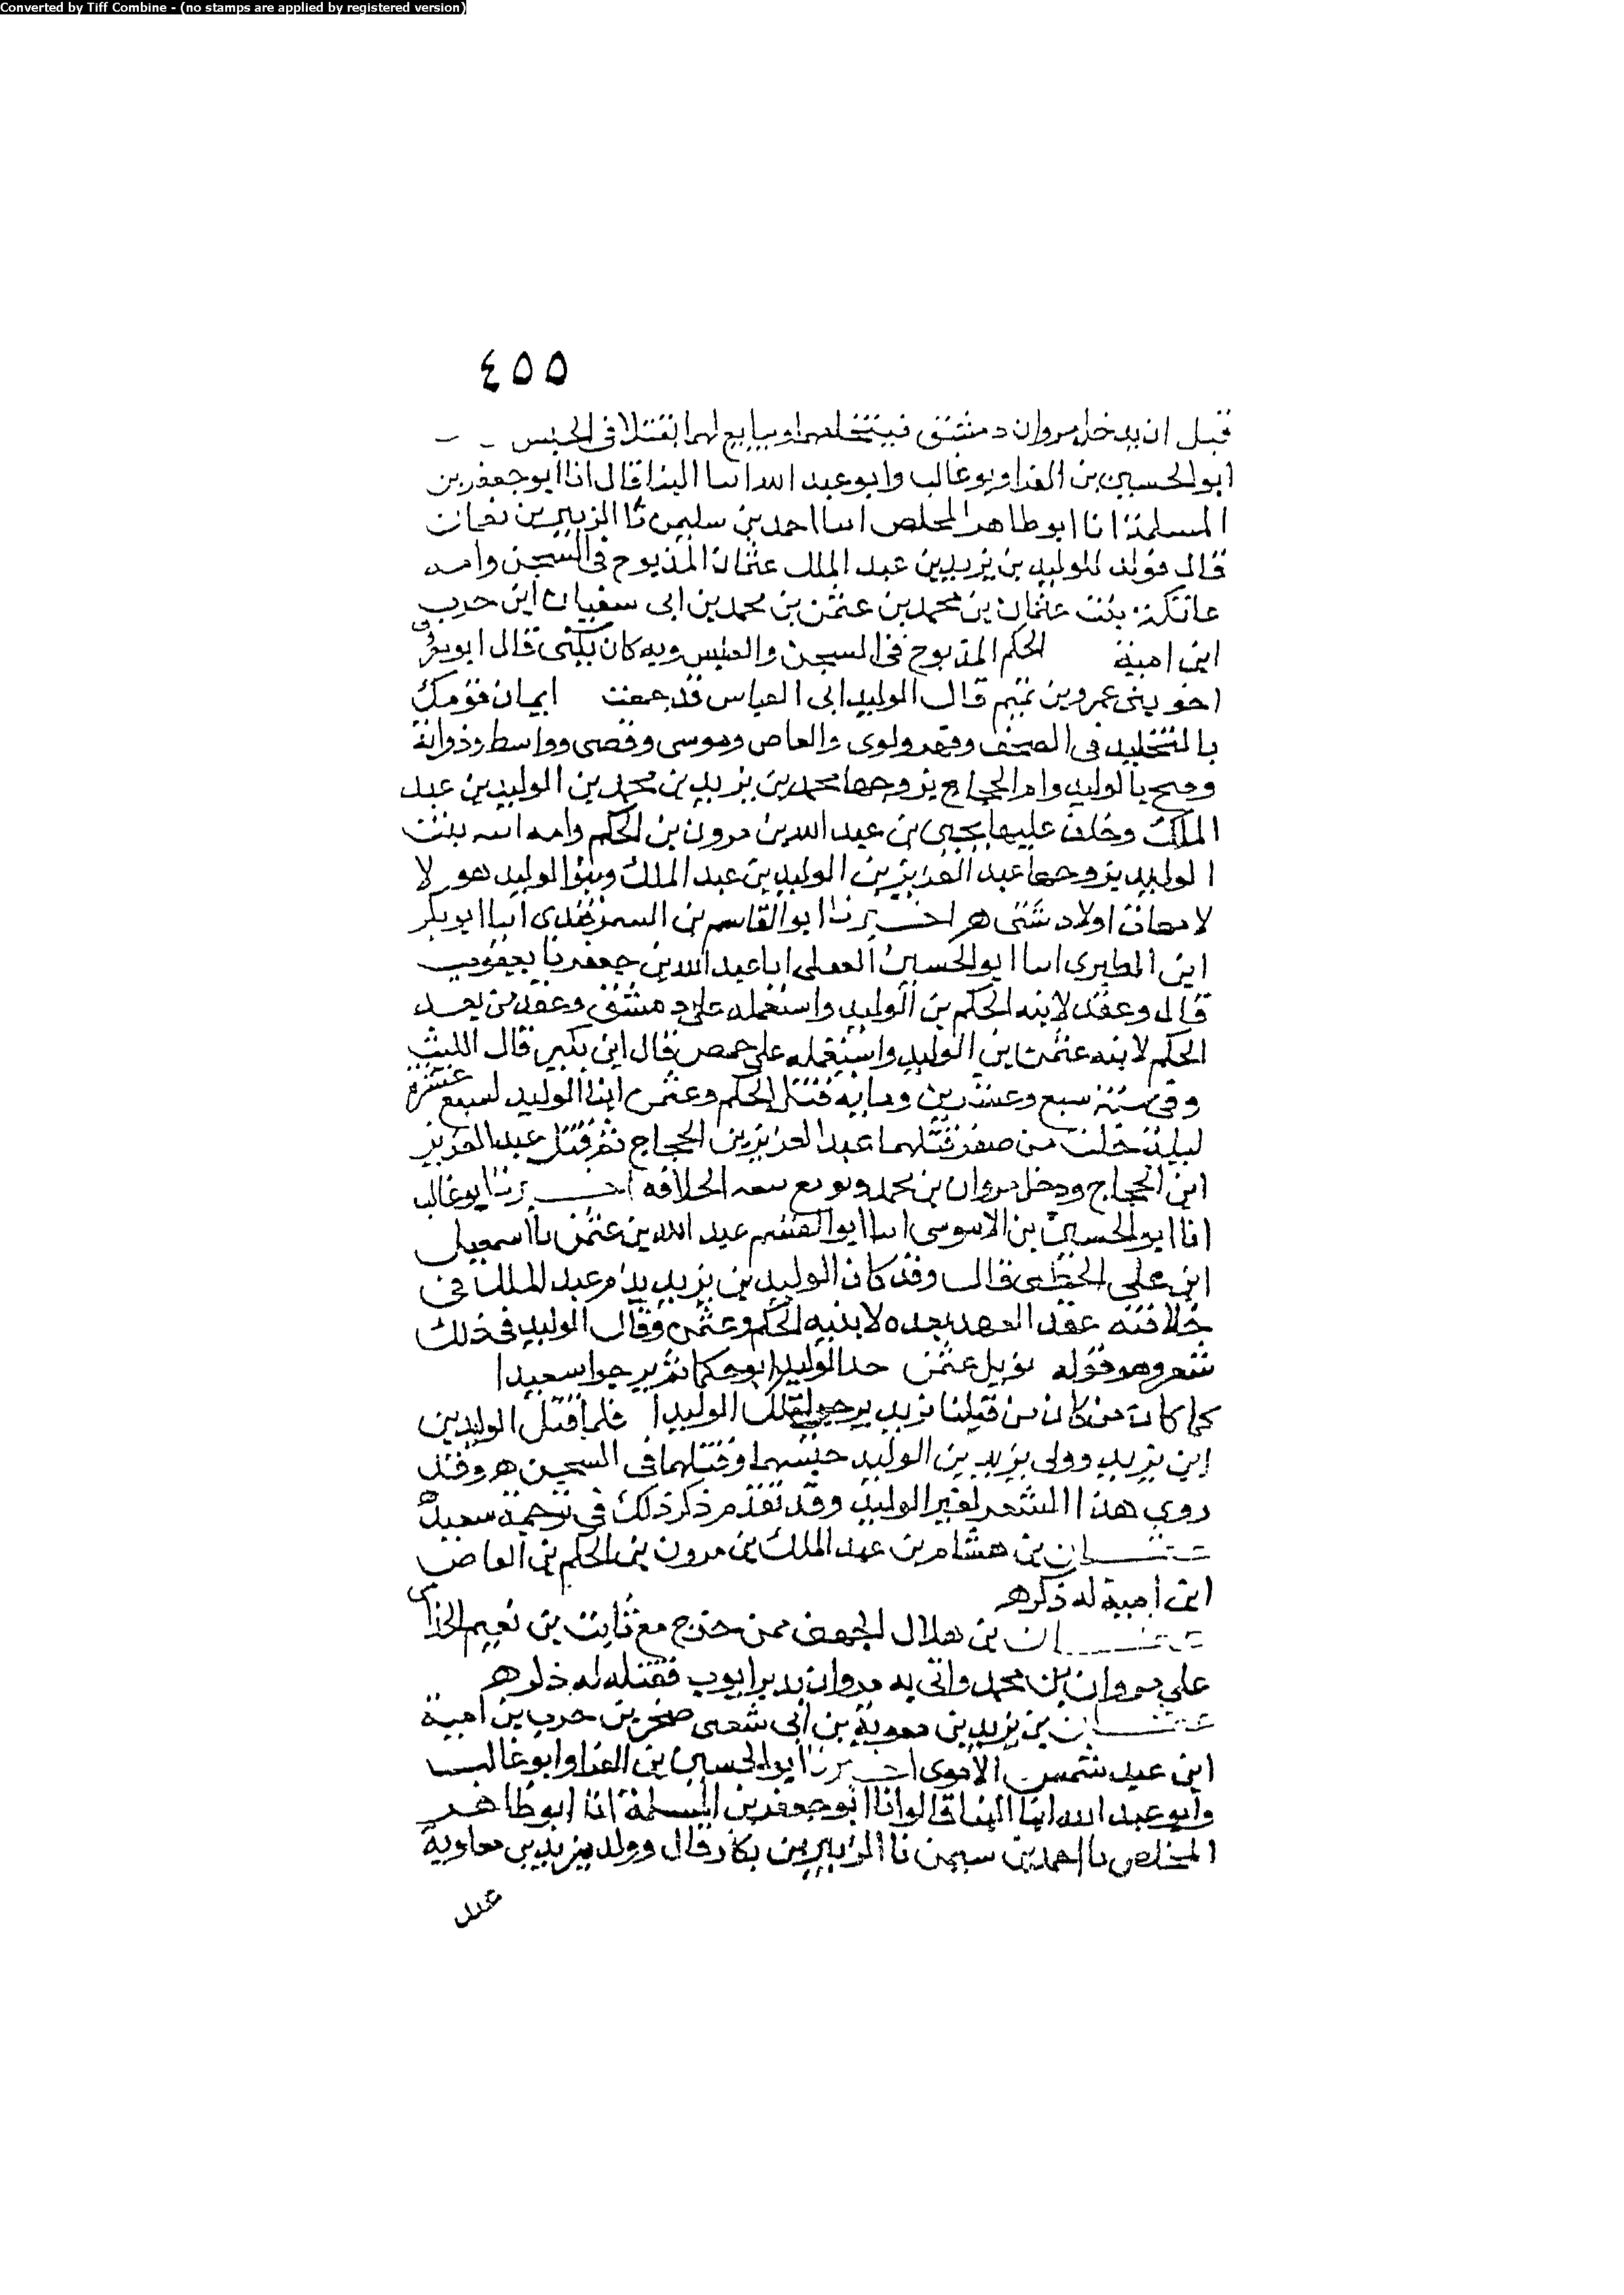 Converted by Tiff Combine - (no stamps are applied by registered version)
٤٥٥
قبل ان يدخل مروان دمشق فيتخلصهما ويبايع لهما فقتلا في الحبس
ابو الحسين بن الفرا وبو غالب وابو عبد الله انبا البنا قال انا ابو جعفر بن
المسلمة انا ابو طاهر المخلص انبا احمد بن سليمن نا الزبير بن
قال فولد للوليد بن يزيد بن عبد الملك عثمان المذبوح في السجن وامه
عاتكة بنت عثمان بن محمد بن عثمن بن محمد بن ابي سفيان ابن حرب
ابن امية الحكم المذبوح في السجن وبه كان يكنى قال ابو
اخو بني عمرو بن تميم قال الوليد ابي العباس قد جمعت ايمان قومك
بالتخليد في الصحف وفهر ولوى والعاص وموسى وقصى وواسط وذوابة
بالوليد وام الحجاج يزوجها محمد بن يزيد بن محمد بن الوليد بن عبد
الملك وخلف عليها يحيى بن عبد الله بن مرون بن الحكم وامه بنت
الوليد يزوجها عبد العزيز بن الوليد بن عبد الملك وبنو الوليد هو لا
لامهات اولاد شتى هـ اخبرنا ابو القاسم بن السمرقندي انبا ابو بكر
ابن الطبري انبا ابو الحسين انا عبد الله بن جعفر نا يعقوب
قال وعقد لابنه الحكم بن الوليد واستعمله على دمشق وعقد من بعد
الحكم لابنه عثمن بن الوليد واستعمله على حمص قال ابن بكير قال الليث
وفي سنة سبع وعشرين ومايه قتل الحكم وعثمن ابنا الوليد لسبع عشرة
ليلة خلت من صفر قتلهما عبد العزيز بن الحجاج ثم قتل عبد العزيز
ابن الحجاج ودخل مروان بن محمد وبويع الخلافه اخبرنا ابو غالب
انا ابو الحسين بن الابنوسى انبا ابو القسم عبد الله بن عثمن نا اسمعيل
ابن على الخطبى قال وقد كان الوليد بن يزيد بن عبد الملك في
خلافته عقد العهد بعده لابنيه الحكم وعثمن وقال الوليد في ذلك
شعر وهو قوله نؤمل عثمن الوليد ابو حكما ثم يرجوا سعيدا
كما كان من كان من قبلنا يزيد يرجى لتلك الوليدا فلما قتل الوليد بن
ابن يزيد وولى يزيد بن الوليد حبسهما وقتلهما في السجن هـ وقد
روي هذا الشعر لغير الوليد وقد تقدم ذكر ذلك في ترجمة سعيد هـ
عثمان بن هشام بن عبد الملك بن مرون بن الحكم بن العاص
ابن امية له ذكر هـ
عثمان بن هلال ممن خرج مع ثابت بن نعيم
على مروان بن محمد واتى به مروان بدير ايوب فقتله له ذكر هـ
عثمان بن يزيد بن معوية بن ابي صخر بن حرب بن امية
ابن عبد شمس الاموى اخبرنا ابو الحسين بن الفرا وابو غالب
وابو عبد الله ابنا البنا قالوا انا ابو جعفر بن المسلمة انا ابو طاهر
المخلص نا احمد بن سليمن نا الزبير بن بكار قال وولد يزيد بن معاوية